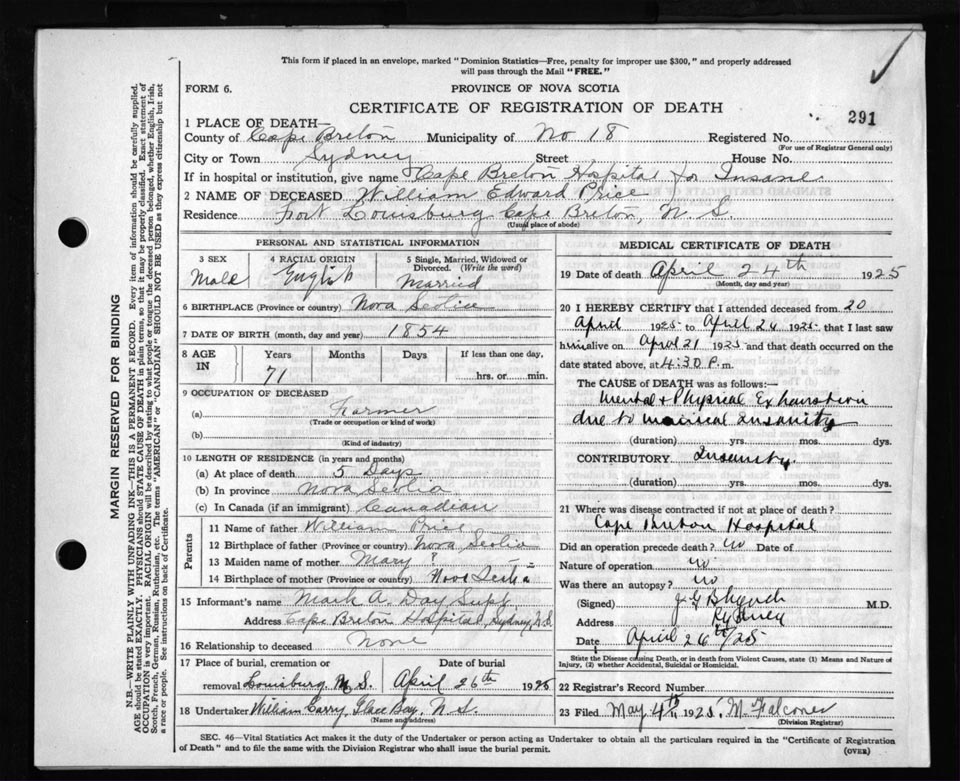 This form if placed in an envelope, marked "Dominion Statistics—Free, penalty for improper use $300," and properly addressed
will pass through the Mail "FREE."
FORM 6.
PROVINCE OF NOVA SCOTIA
CERTIFICATE OF REGISTRATION OF DEATH
291
1 PLACE OF DEATH—
County of Cape Breton Municipality of No 18 Registered No.
(For use of Registrar General only)
City or Town Sydney Street House No.
If in hospital or institution, give name Cape Breton Hospital for Insane.
2 NAME OF DECEASED William Edward Price
Residence Fort Louisburg Cape Breton, N. S.
(Usual place of abode)
PERSONAL AND STATISTICAL INFORMATION
3 SEX Male
4 RACIAL ORIGIN English
5 Single, Married, Widowed or
Divorced. (Write the word)
Married
6 BIRTHPLACE (Province or country) Nova Scotia
7 DATE OF BIRTH (month, day and year) 1854
8 AGE IN Years Months Days If less than one day,
71 hrs. or min.
9 OCCUPATION OF DECEASED
(a) Farmer
(Trade or occupation or kind of work)
(b)
(Kind of industry)
10 LENGTH OF RESIDENCE (in years and months)
(a) At place of death 5 Days
(b) In province Nova Scotia
(c) In Canada (if an immigrant) Canadian
Parents
11 Name of father William Price
12 Birthplace of father (Province or country) Nova Scotia
13 Maiden name of mother Mary ?
14 Birthplace of mother (Province or country) Nova Scotia
15 Informant's name Mark A. Day Supt
Address Cape Breton Hospital, Sydney, N.S.
16 Relationship to deceased None
17 Place of burial, cremation or Date of burial
removal Louisburg N.S. April 26th 1925
18 Undertaker William Carry, Glace Bay, N.S.
(Name and address)
MEDICAL CERTIFICATE OF DEATH
19 Date of death April 24th 1925
(Month, day and year)
20 I HEREBY CERTIFY that I attended deceased from 20
April 1925 to April 24 1925 that I last saw
him alive on April 21 1925 and that death occurred on the
date stated above, at 4:30 P. m.
The CAUSE of DEATH was as follows:—
Mental & Physical Exhaustion
due to maniacal insanity
(duration) yrs. mos. dys.
CONTRIBUTORY. Insanity.
(duration) yrs. mos. dys.
21 Where was disease contracted if not at place of death?
Cape Breton Hospital
Did an operation precede death? no Date of
Nature of operation no
Was there an autopsy? no
(Signed) M.D.
Address Sydney
Date April 26th/25
State the Disease causing Death, or in death from Violent Causes, state (1) Means and Nature of
Injury, (2) whether Accidental, Suicidal or Homicidal.
22 Registrar's Record Number
23 Filed May 4th 1925. M. Falconer
(Division Registrar)
SEC. 46—Vital Statistics Act makes it the duty of the Undertaker or person acting as Undertaker to obtain all the particulars required in the "Certificate of Registration
of Death" and to file the same with the Division Registrar who shall issue the burial permit.
(OVER)
MARGIN RESERVED FOR BINDING
N.B.—WRITE PLAINLY WITH UNFADING INK—THIS IS A PERMANENT RECORD. Every item of information should be carefully supplied.
AGE should be stated EXACTLY. PHYSICIANS should STATE CAUSE OF DEATH in plain terms, so that it may be properly classified. Exact statement of
OCCUPATION is very important. RACIAL ORIGIN will be described by stating to what people or tongue the deceased person belonged, whether English, Irish,
Scotch, French, German, Russian, Ruthenian, etc. The terms "AMERICAN" or "CANADIAN" SHOULD NOT BE USED as they express citizenship but not
a race or people. See instructions on back of Certificate.